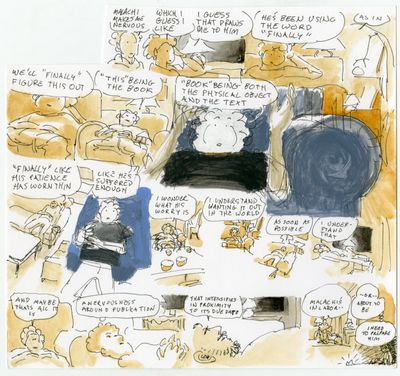 MALACHI
MAKES ME
NERVOUS
WHICH I
GUESS I
LIKE
I GUESS
THAT DRAWS
ME TO HIM
HE'S BEEN USING
THE WORD
"FINALLY"
AS IN
WE'LL "FINALLY"
FIGURE THIS OUT
"THIS" BEING
THE BOOK
"BOOK" BEING BOTH
THE PHYSICAL OBJECT
AND THE TEXT
"FINALLY" LIKE
HIS PATIENCE
HAS WORN THIN
LIKE HE'S
SUFFERED
ENOUGH
I WONDER
WHAT HIS
WORRY IS
I UNDERSTAND
WANTING IT OUT
IN THE WORLD
AS SOON AS
POSSIBLE
I UNDER-
STAND
THAT
AND MAYBE
THAT'S ALL IT
IS
A NERVOUSNESS
AROUND PUBLICATION
THAT INTENSIFIES
IN PROXIMITY
TO ITS DUE DATE
MALACHI'S
IN LABOR—
—OR—
ABOUT TO
BE
I NEED
TO PREPARE
HIM